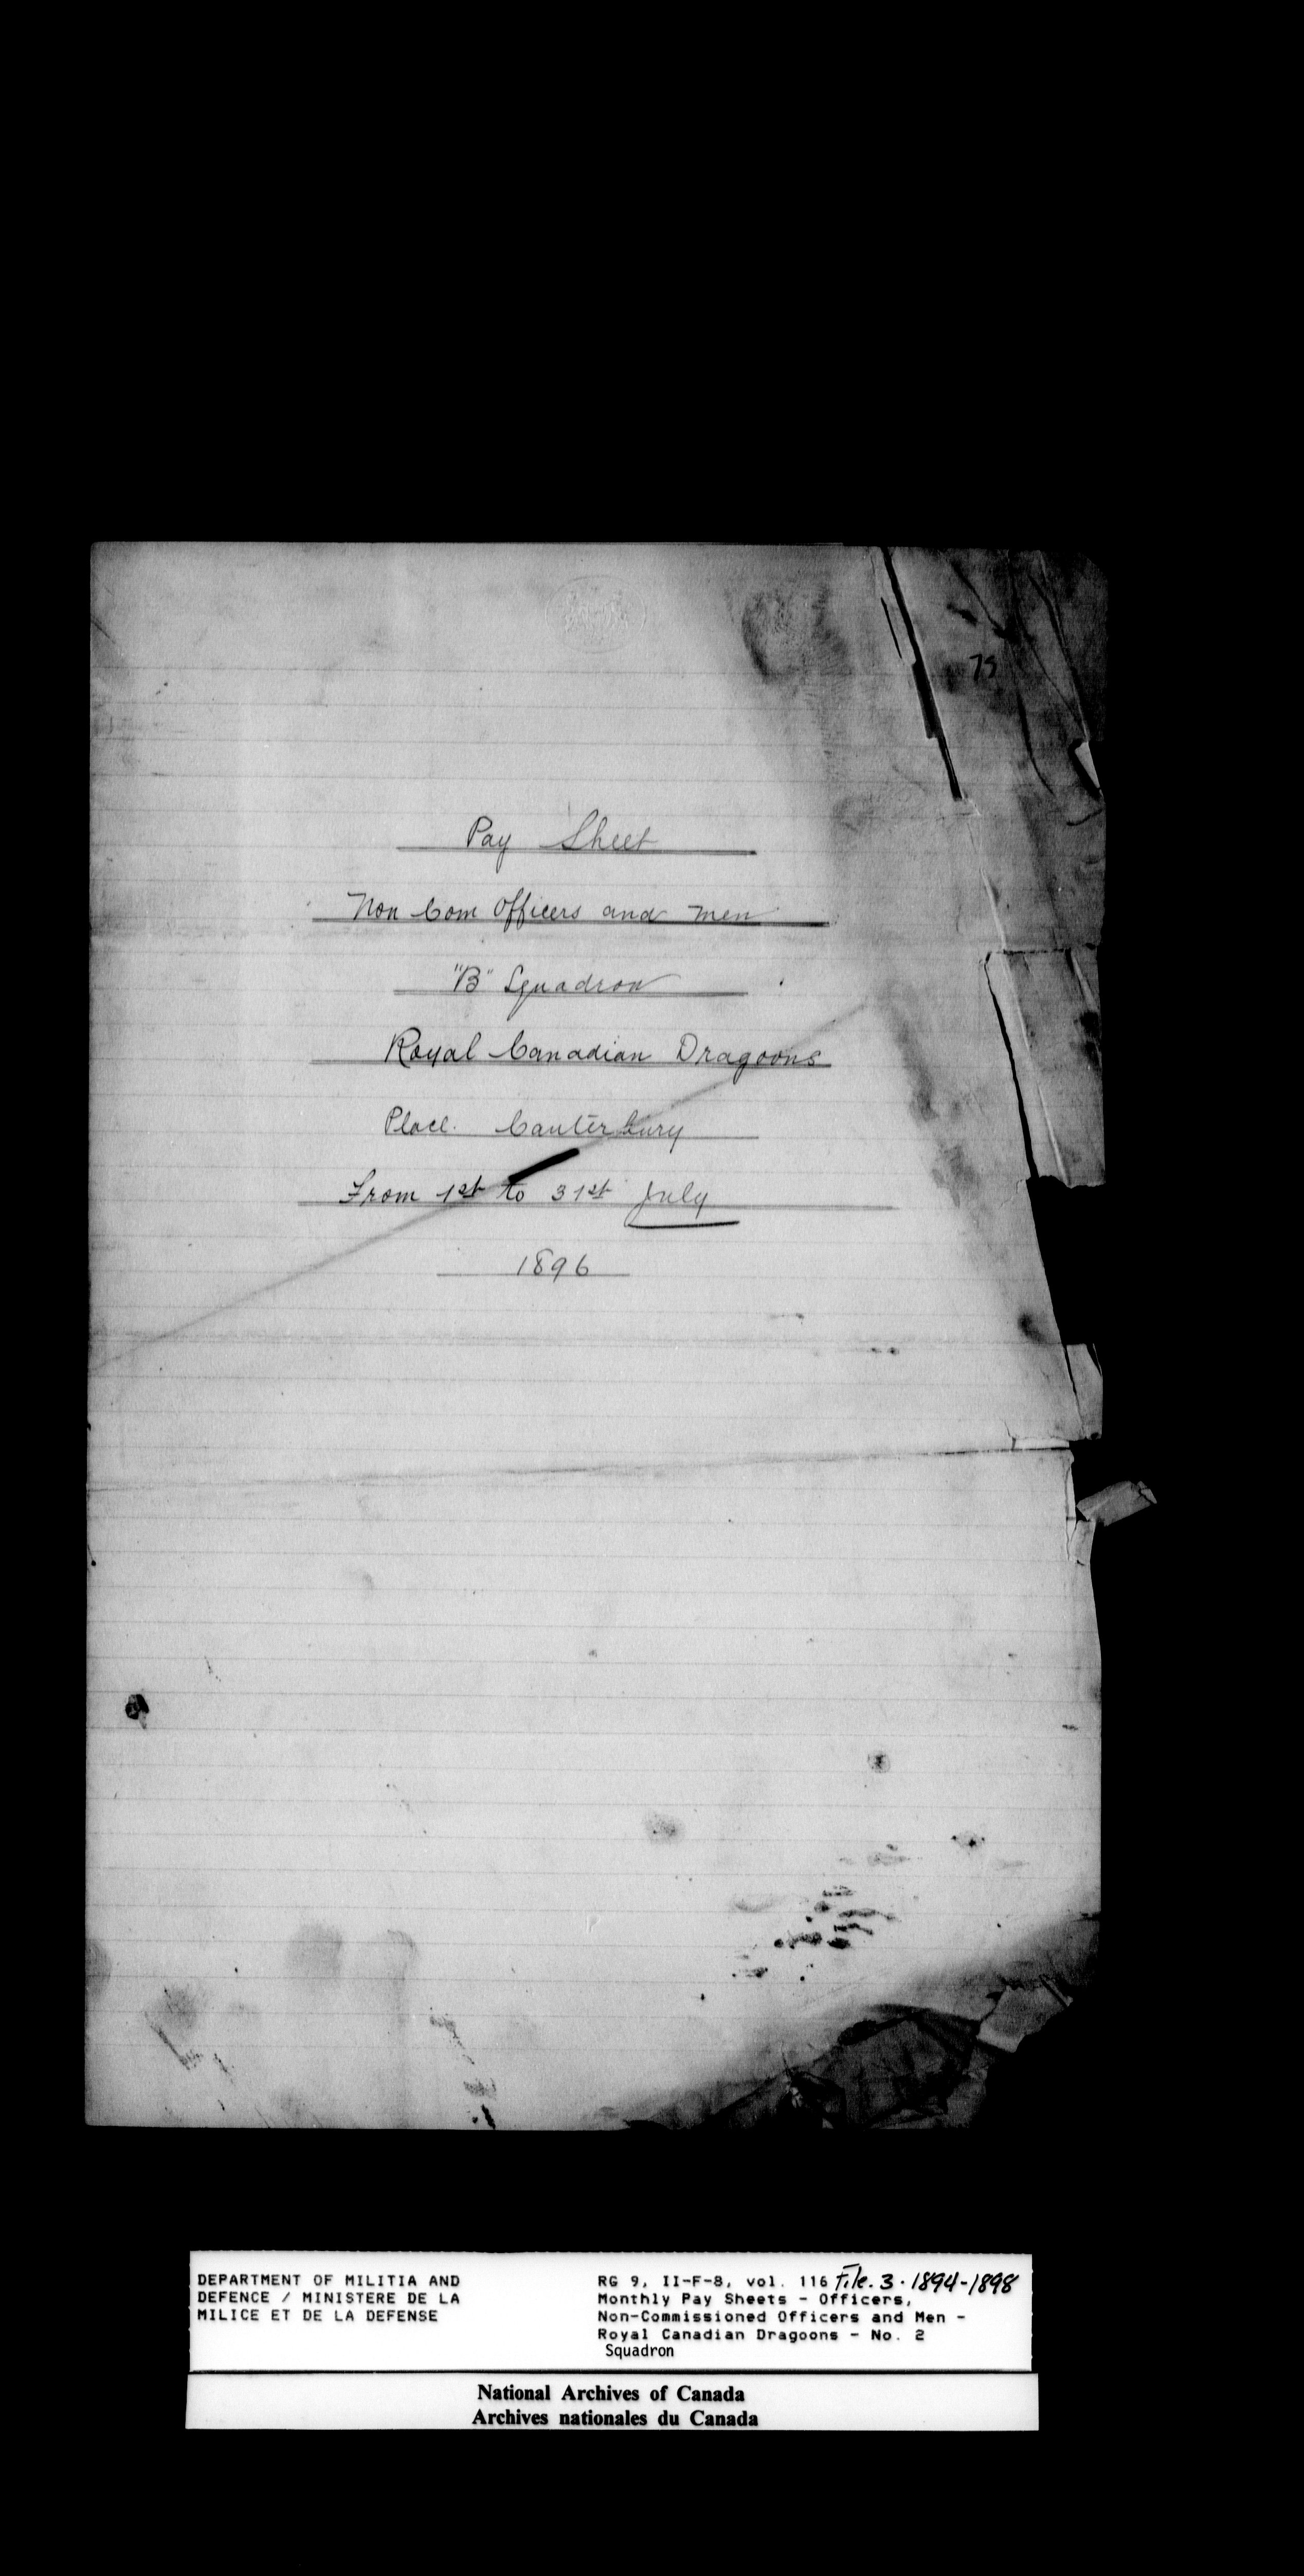 75
Pay Sheet
Non Com Officers and Men
"B" Squadron
Royal Canadian Dragoons
Place. Canterbury
From 1st to 31st July
1896
DEPARTMENT OF MILITIA AND
DEFENCE / MINISTERE DE LA
MILICE ET DE LA DEFENSE
RG 9, II-F-8, vol. 116 File. 3. 1894-1898
Monthly Pay Sheets - Officers,
Non-Commissioned Officers and Men -
Royal Canadian Dragoons - No. 2
Squadron
National Archives of Canada
Archives nationales du Canada